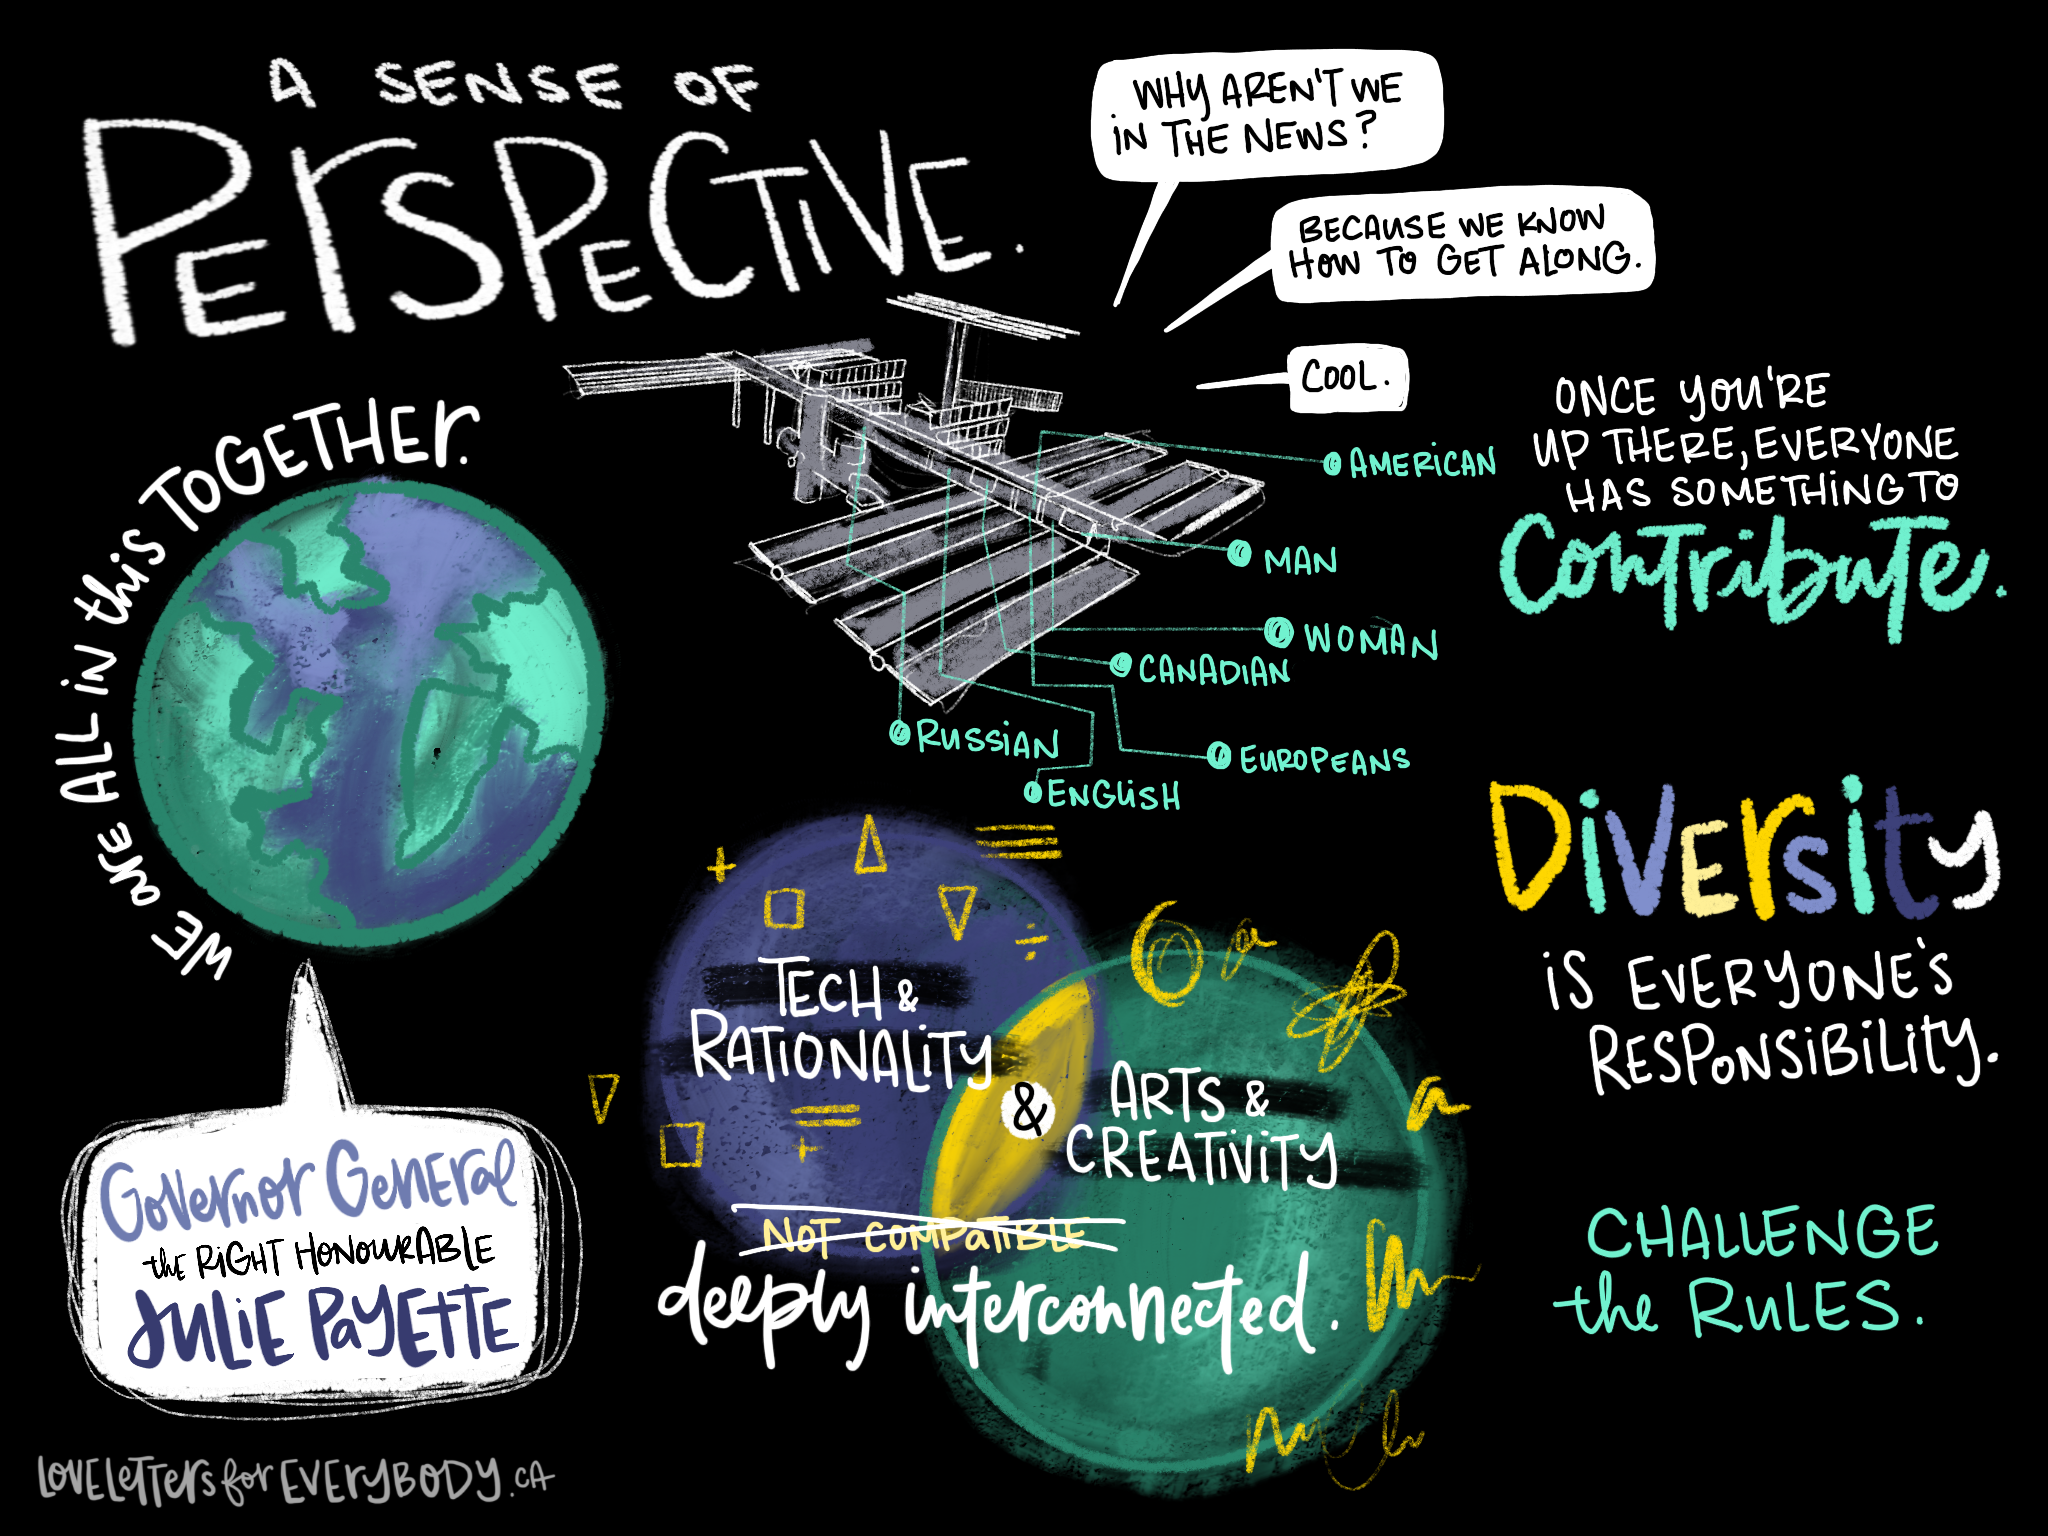 A SENSE OF
PERSPECTIVE.
WHY AREN'T WE
IN THE NEWS?
BECAUSE WE KNOW
HOW TO GET ALONG.
COOL.
AMERICAN
MAN
WOMAN
CANADIAN
RUSSIAN
EUROPEANS
ENGLISH
ONCE YOU'RE
UP THERE, EVERYONE
HAS SOMETHING TO
Contribute.
WE ARE ALL IN this TOGETHER.
DIVERSITY
IS EVERYONE'S
RESPONSIBILITY.
TECH &
RATIONALITY
&
ARTS &
CREATIVITY
NOT COMPATIBLE
deeply interconnected.
CHALLENGE
the RULES.
GOVERNOR GENERAL
the RIGHT HONOURABLE
JULIE PAYETTE
LOVELETTERSforEVERYBODY.CA